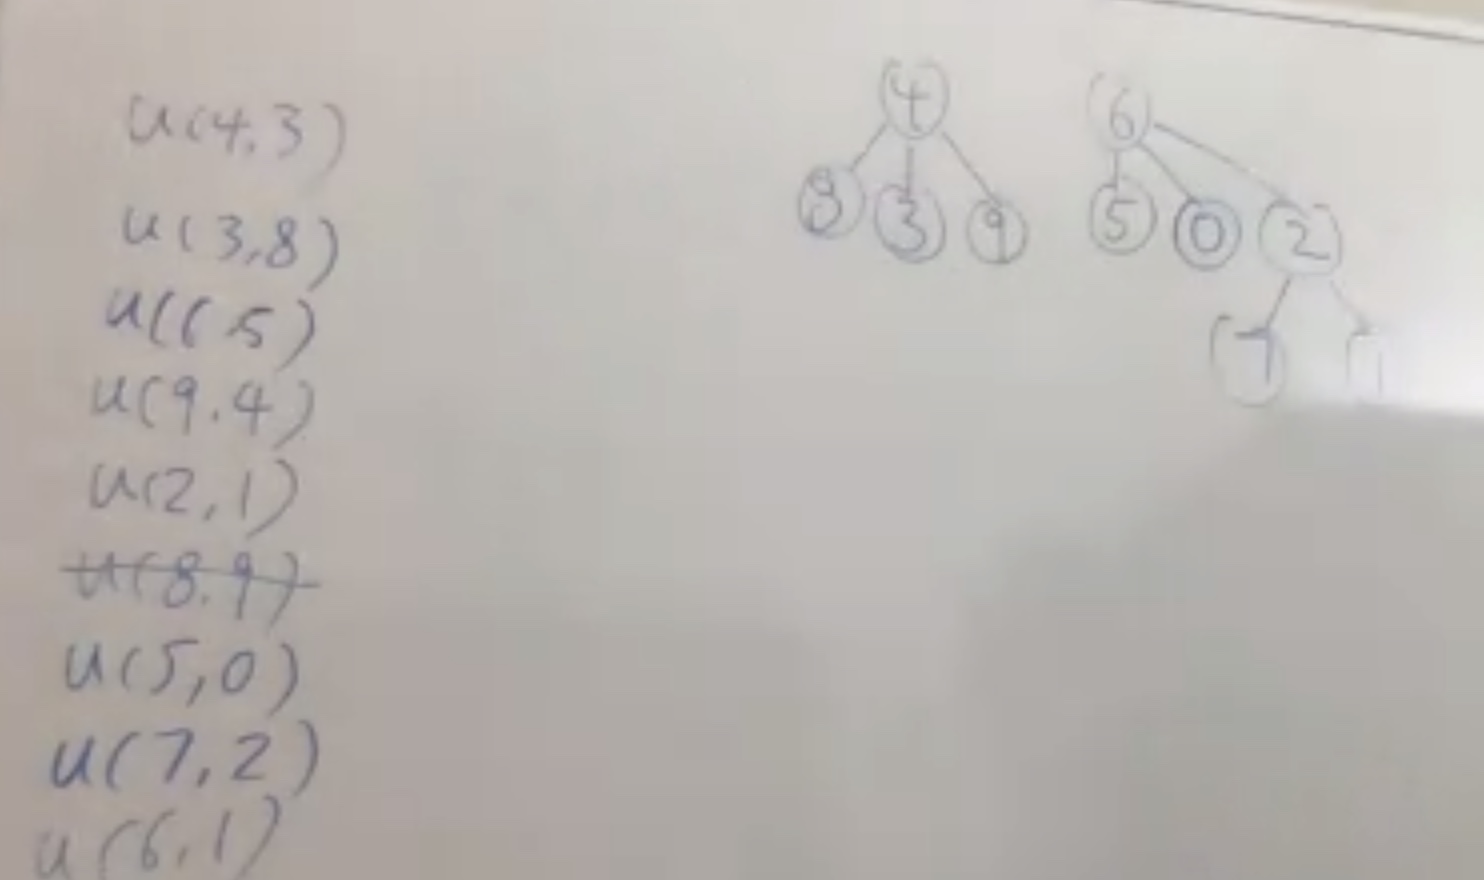 u(4,3)
u(3,8)
u(( 5)
u(9.4)
u(2,1)
u(8.9)
u(5,0)
u(7,2)
u(6,1)
4 6
8 3 9 5 0 2
7 1